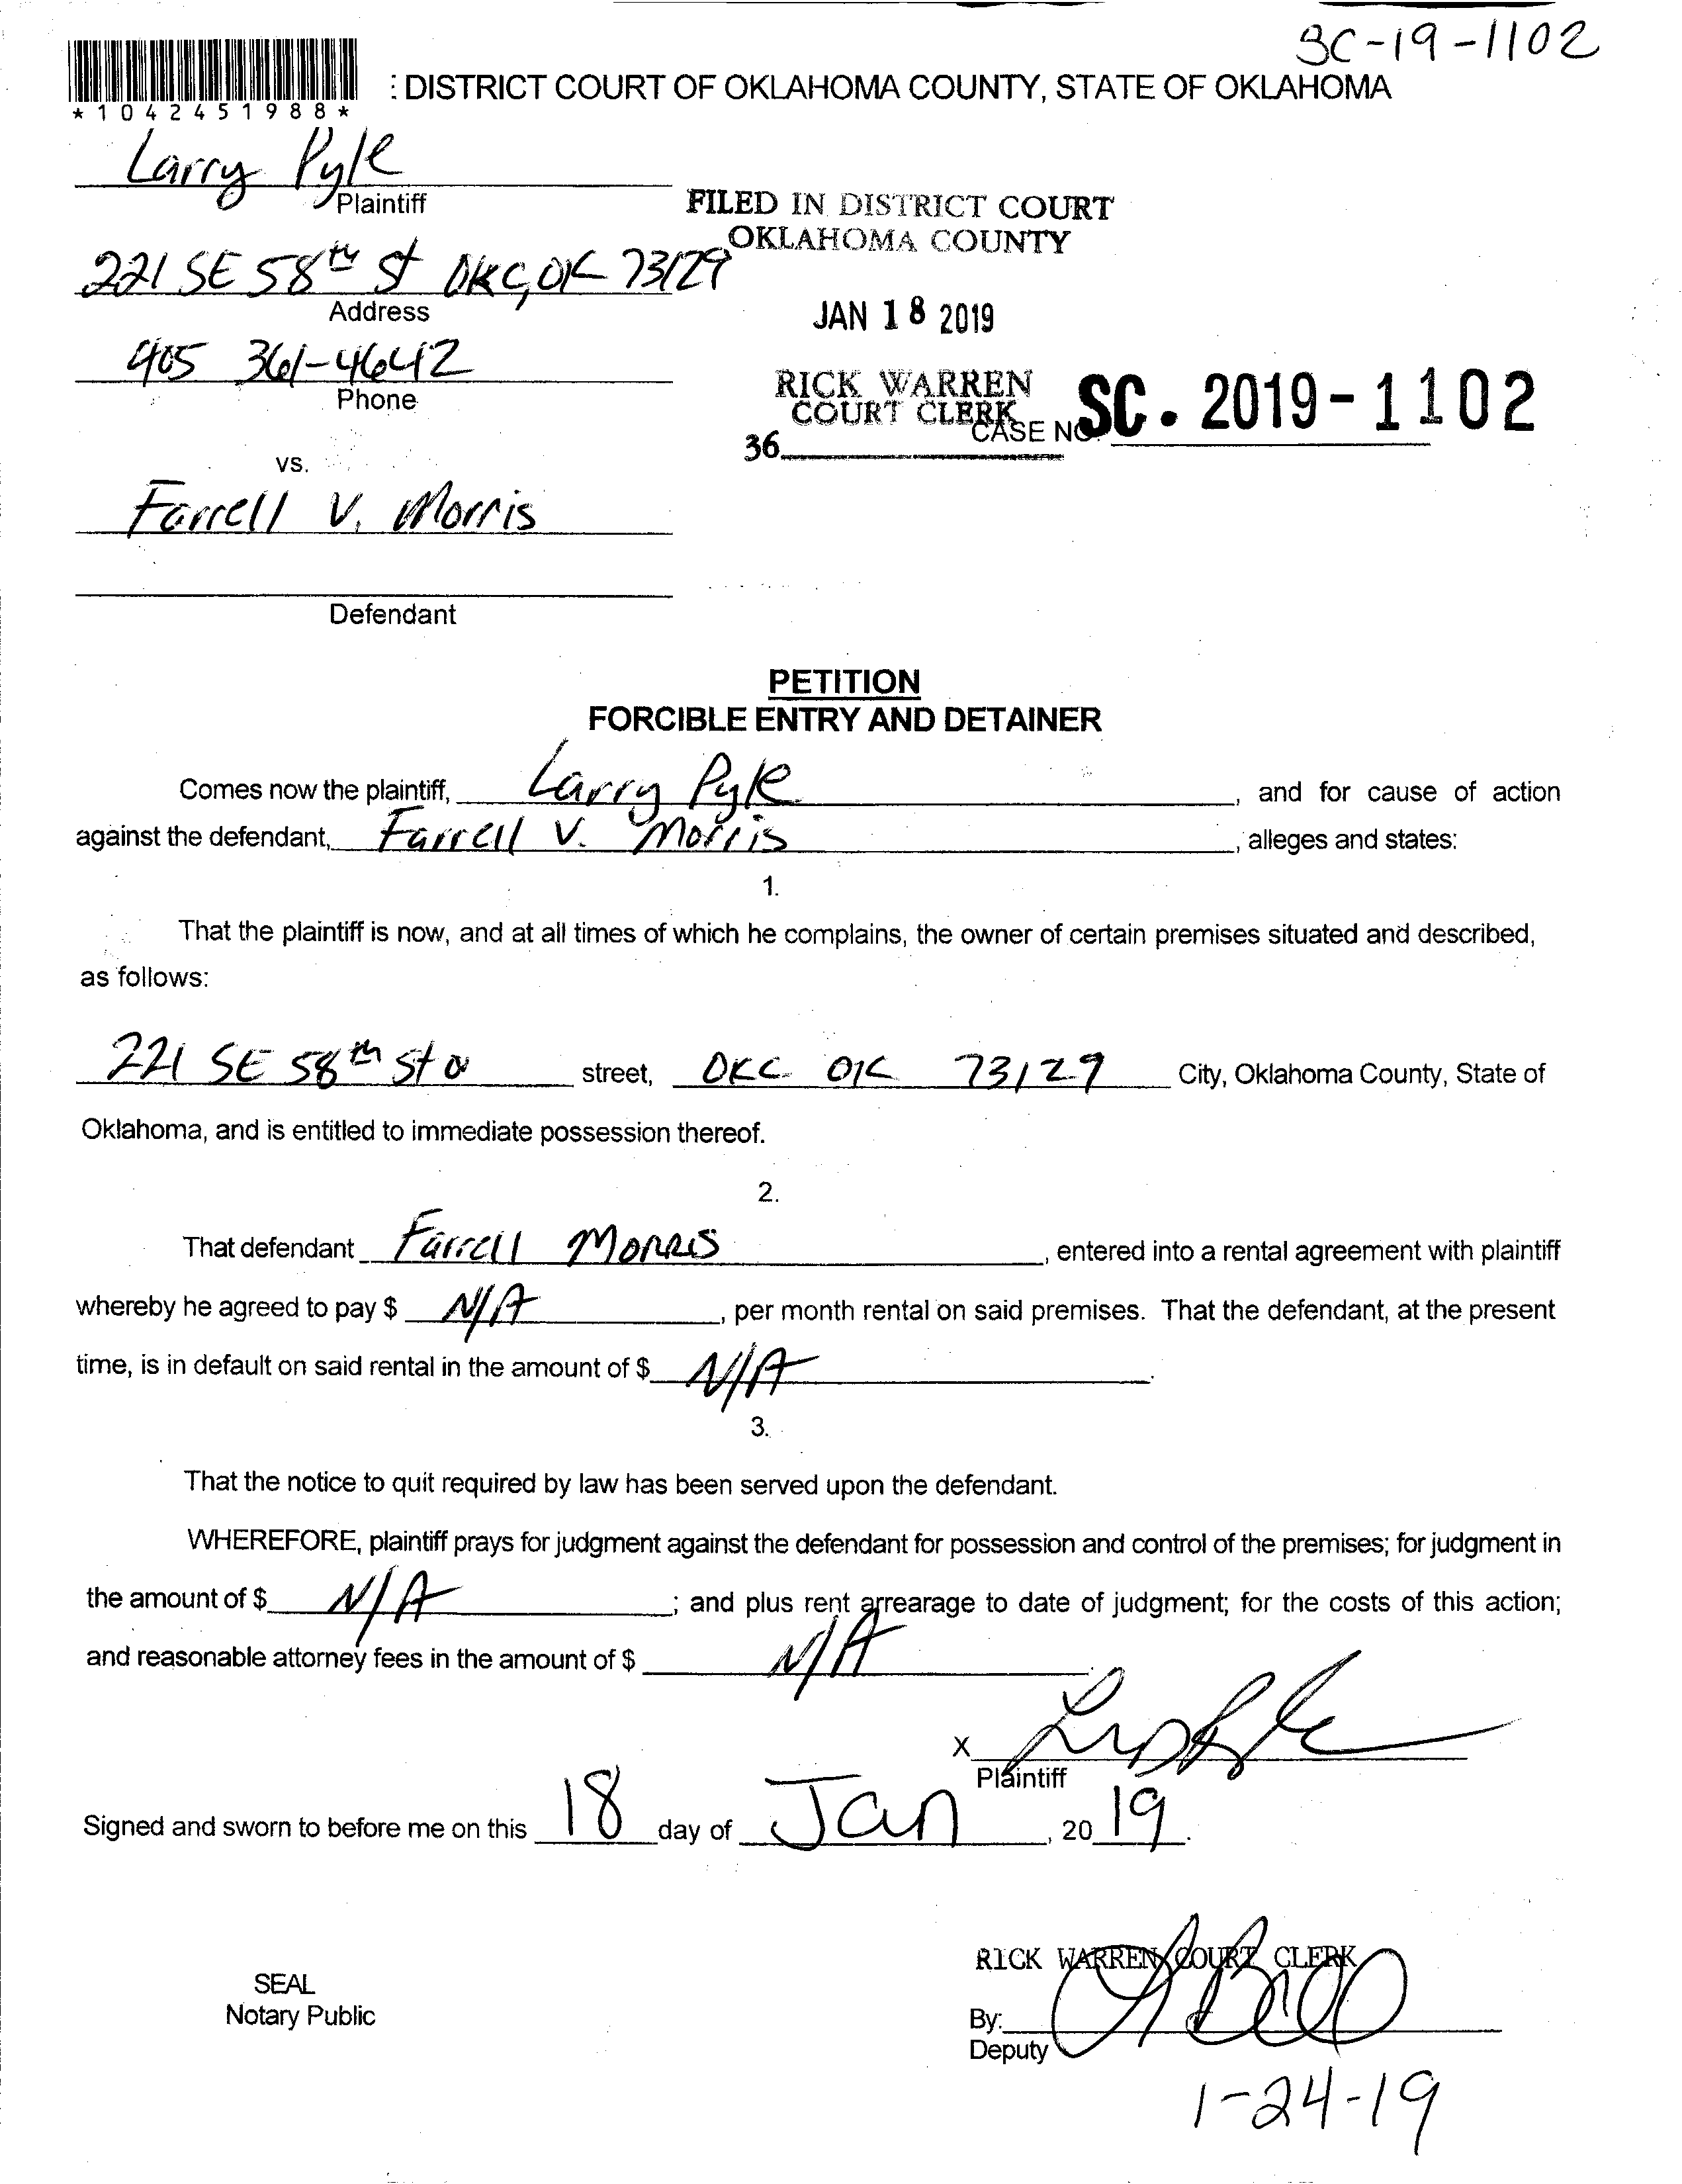 SC-19-1102
: DISTRICT COURT OF OKLAHOMA COUNTY, STATE OF OKLAHOMA
* 1 0 4 2 4 5 1 9 8 8 *
Larry Pyle
Plaintiff
FILED IN DISTRICT COURT
OKLAHOMA COUNTY
221 SE 58th St OKC, OK 73129
Address
JAN 18 2019
405 361-4642
Phone
RICK WARREN
COURT CLERK
CASE NO. SC. 2019-1102
36
vs.
Farrell V. Morris
Defendant
PETITION
FORCIBLE ENTRY AND DETAINER
Comes now the plaintiff, Larry Pyle, and for cause of action
against the defendant, Farrell V. Morris, alleges and states:
1.
That the plaintiff is now, and at all times of which he complains, the owner of certain premises situated and described,
as follows:
221 SE 58th St street, OKC OK 73129 City, Oklahoma County, State of
Oklahoma, and is entitled to immediate possession thereof.
2.
That defendant Farrell Morris, entered into a rental agreement with plaintiff
whereby he agreed to pay $ N/A, per month rental on said premises. That the defendant, at the present
time, is in default on said rental in the amount of $ N/A.
3.
That the notice to quit required by law has been served upon the defendant.
WHEREFORE, plaintiff prays for judgment against the defendant for possession and control of the premises; for judgment in
the amount of $ N/A; and plus rent arrearage to date of judgment; for the costs of this action;
and reasonable attorney fees in the amount of $ N/A.
X
Plaintiff
Signed and sworn to before me on this 18 day of Jan, 2019.
RICK WARREN COURT CLERK
SEAL
Notary Public
By:
Deputy
1-24-19